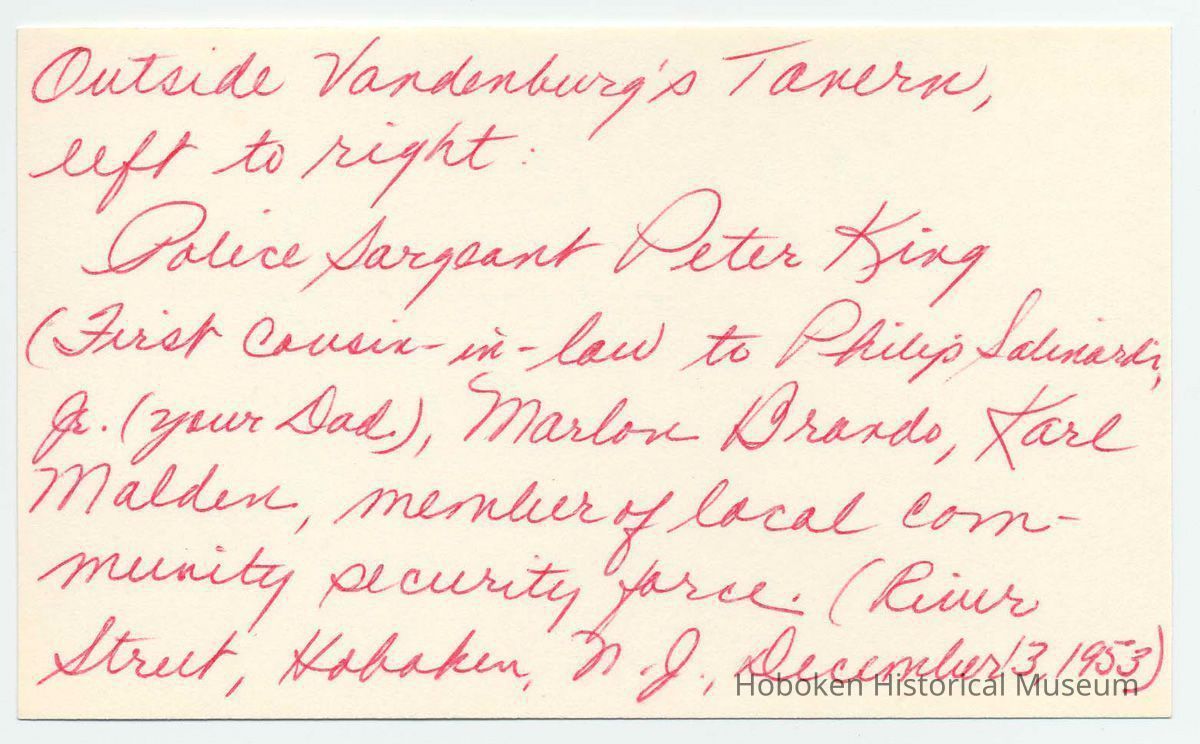 Outside Vandenburg's Tavern,
left to right:
Police Sargeant Peter King
(First cousin-in-law to Philip Salinardi,
Jr. (your Dad.), Marlon Brando, Karl
Malden, member of local com-
munity security force. (River
Street, Hoboken, N.J., December 13, 1953)
Hoboken Historical Museum